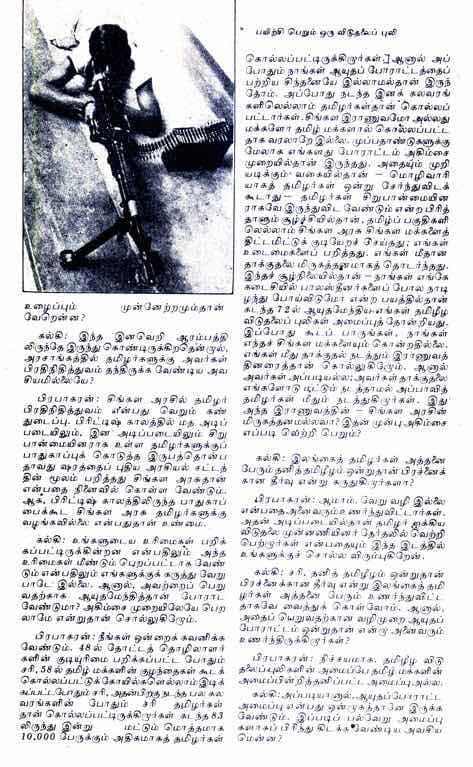 உழைப்பும் முன்னேற்றமும்தான்
வேறென்ன?
கல்கி: இந்த இனவெறி ஆரம்பத்தி
லிருந்தே இருந்து கொண்டிருக்கிறதென்றால்,
அரசாங்கத்தில் தமிழர்களுக்கு அவர்கள்
பிரதிநிதித்துவம் தந்திருக்க வேண்டிய அவ
சியமில்லையே?
பிரபாகரன்: சிங்கள அரசில் தமிழர்
பிரதிநிதித்துவம் என்பது வெறும் கண்
துடைப்பு. பிரிட்டிஷ் காலத்தில் மத அடிப்
படையிலும், இன அடிப்படையிலும் சிறு
பான்மையினராக உள்ள தமிழர்களுக்குப்
பாதுகாப்புக் கொடுத்த இருபத்தொன்ப
தாவது ஷரத்தைப் புதிய அரசியல் சட்டத்
தின் மூலம் பறித்தது சிங்கள அரசுதான்
என்பதை நினைவில் கொள்ள வேண்டும்.
ஆக, பிரிட்டிஷ் காலத்திலிருந்த பாதுகாப்
பைக்கூட சிங்கள அரசு தமிழர்களுக்கு
வழங்கவில்லை என்பதுதான் உண்மை.
கல்கி: உங்களுடைய உரிமைகள் பறிக்
கப்பட்டிருக்கின்றன என்பதிலும் அந்த
உரிமைகள் மீண்டும் பெறப்பட்டாக வேண்
டும் என்பதிலும் எங்களுக்குக் கருத்து வேறு
பாடே இல்லை. ஆனால், அவற்றைப் பெறு
வதற்காக ஆயுதமேந்தித்தான் போராட
வேண்டுமா? அகிம்சை முறையிலேயே பெற
லாமே என்றுதான் சொல்லுகிறோம்.
பிரபாகரன்: நீங்கள் ஒன்றைக் கவனிக்க
வேண்டும். 48ல் தோட்டத் தொழிலாளர்
களின் குடியுரிமை பறிக்கப்பட்ட போதும்
சரி, 58ல் தமிழ் மக்களின் குழந்தைகள் கூடக்
கொல்லப்பட்டுக் கோயில்களெல்லாம் இடிக்
கப்பட்டபோதும் சரி, அதன்பிறகு நடந்த பல கல
வரங்களின் போதும் சரி தமிழர்கள்
தான் கொல்லப்பட்டிருக்கிறார்கள். கடந்த 83
லிருந்து இன்று மட்டும் மொத்தமாக
10,000 பேருக்கும் அதிகமாகத் தமிழர்கள்
பயிற்சி பெறும் ஒரு விடுதலைப் புலி
கொல்லப்பட்டிருக்கிறார்கள்.] ஆனால் அப்
போதும் நாங்கள் ஆயுதப் போராட்டத்தைப்
பற்றிய சிந்தனையே இல்லாமல்தான் இருந்
தோம். அப்போது நடந்த இனக் கலவரங்
களிலெல்லாம் தமிழர்கள்தான் கொல்லப்
பட்டார்கள். சிங்கள இராணுவமோ அல்லது
மக்களோ தமிழ் மக்களால் கொல்லப்பட்ட
தாக வரலாறே இல்லை. முப்பதாண்டுகளுக்கு
மேலாக எங்களது போராட்டம் அகிம்சை
முறையில்தான் இருந்தது. அதையும் முறி
யடிக்கும் வகையில்தான் – மொழிவாரி
யாகத் தமிழர்கள் ஒன்று சேர்ந்துவிடக்
கூடாது – தமிழர்கள் சிறுபான்மையின
ராகவே இருந்துவிட வேண்டும் என்ற பிரித்
தாளும் சூழ்ச்சியில்தான், தமிழ்ப் பகுதிகளி
லெல்லாம் சிங்கள அரசு சிங்கள மக்களைத்
திட்டமிட்டுக் குடியேறச் செய்தது; எங்கள்
உடைமைகளைப் பறித்தது. எங்கள் மீதான
தாக்குதலை மிருகத்தனமாகத் தொடர்ந்தது.
இந்தச் சூழ்நிலையில்தான் – நாங்கள் எங்கே
கடைசியில் பாலஸ்தீனர்களைப் போல நாடி
ழந்து போய்விடுமோ என்ற பயத்தில்தான்
கடந்த 72ல் ஆயுதமேந்திய எங்கள் தமிழீழ
விடுதலைப் புலிகள் அமைப்புத் தோன்றியது.
இப்போது கூடப் பாருங்கள், நாங்கள்
எந்தச் சிங்கள மக்களையும் கொன்றதில்லை.
எங்கள் மீது தாக்குதல் நடத்தும் இராணுவத்
தினரைத்தான் கொல்லுகிறோம். ஆனால்
அவர்கள் அப்படியல்ல; அவர்கள் தாக்குதலை
எங்களோடு மட்டும் நடத்தாமல் அப்பாவித்
தமிழர்கள் மீதும் நடத்துகிறார்கள். இது
அந்த இராணுவத்தின் – சிங்கள அரசின்
மிருகத்தனமல்லவா? இதன் முன்பு அகிம்சை
எப்படி வெற்றி பெறும்?
கல்கி: இலங்கைத் தமிழர்கள் அத்தனை
பேரும் தனித் தமிழீழம் ஒன்றுதான் பிரச்னைக்
கான தீர்வு என்று கருதுகிறார்களா?
பிரபாகரன்: ஆமாம். வேறு வழி இல்லை
என்பதை அனைவரும் உணர்ந்துவிட்டார்கள்.
அதன் அடிப்படையில்தான் தமிழர் ஐக்கிய
விடுதலை முன்னணியினர் தேர்தலில் வெற்றி
பெற்றார்கள் என்பதையும் இந்த இடத்தில்
உங்களுக்குச் சொல்ல விரும்புகிறேன்.
கல்கி: சரி, தனித் தமிழீழம் ஒன்றுதான்
பிரச்னைக்கான தீர்வு என்று இலங்கைத் தமி
ழர்கள் அத்தனை பேரும் உணர்ந்துவிட்ட
தாகவே வைத்துக் கொள்வோம். ஆனால்,
அதைப் பெறுவதற்கான வழிமுறை ஆயுதப்
போராட்டம் ஒன்றுதான் என்று அனைவரும்
உணர்ந்திருக்கிறார்களா?
பிரபாகரன்: நிச்சயமாக. தமிழீழ விடு
தலைப்புலிகளின் அமைப்பே தமிழ் மக்களின்
அமைப்பின்றித் தனிப்பட்ட அமைப்பு அல்ல.
கல்கி: அப்படியானால், ஆயுதப்போராட்ட
அமைப்பு என்பது ஒன்றாகத்தானே இருக்க
வேண்டும். இப்படிப் பல்வேறு அமைப்பு
களாகப் பிரிந்து கிடக்க வேண்டிய அவசிய
மென்ன?